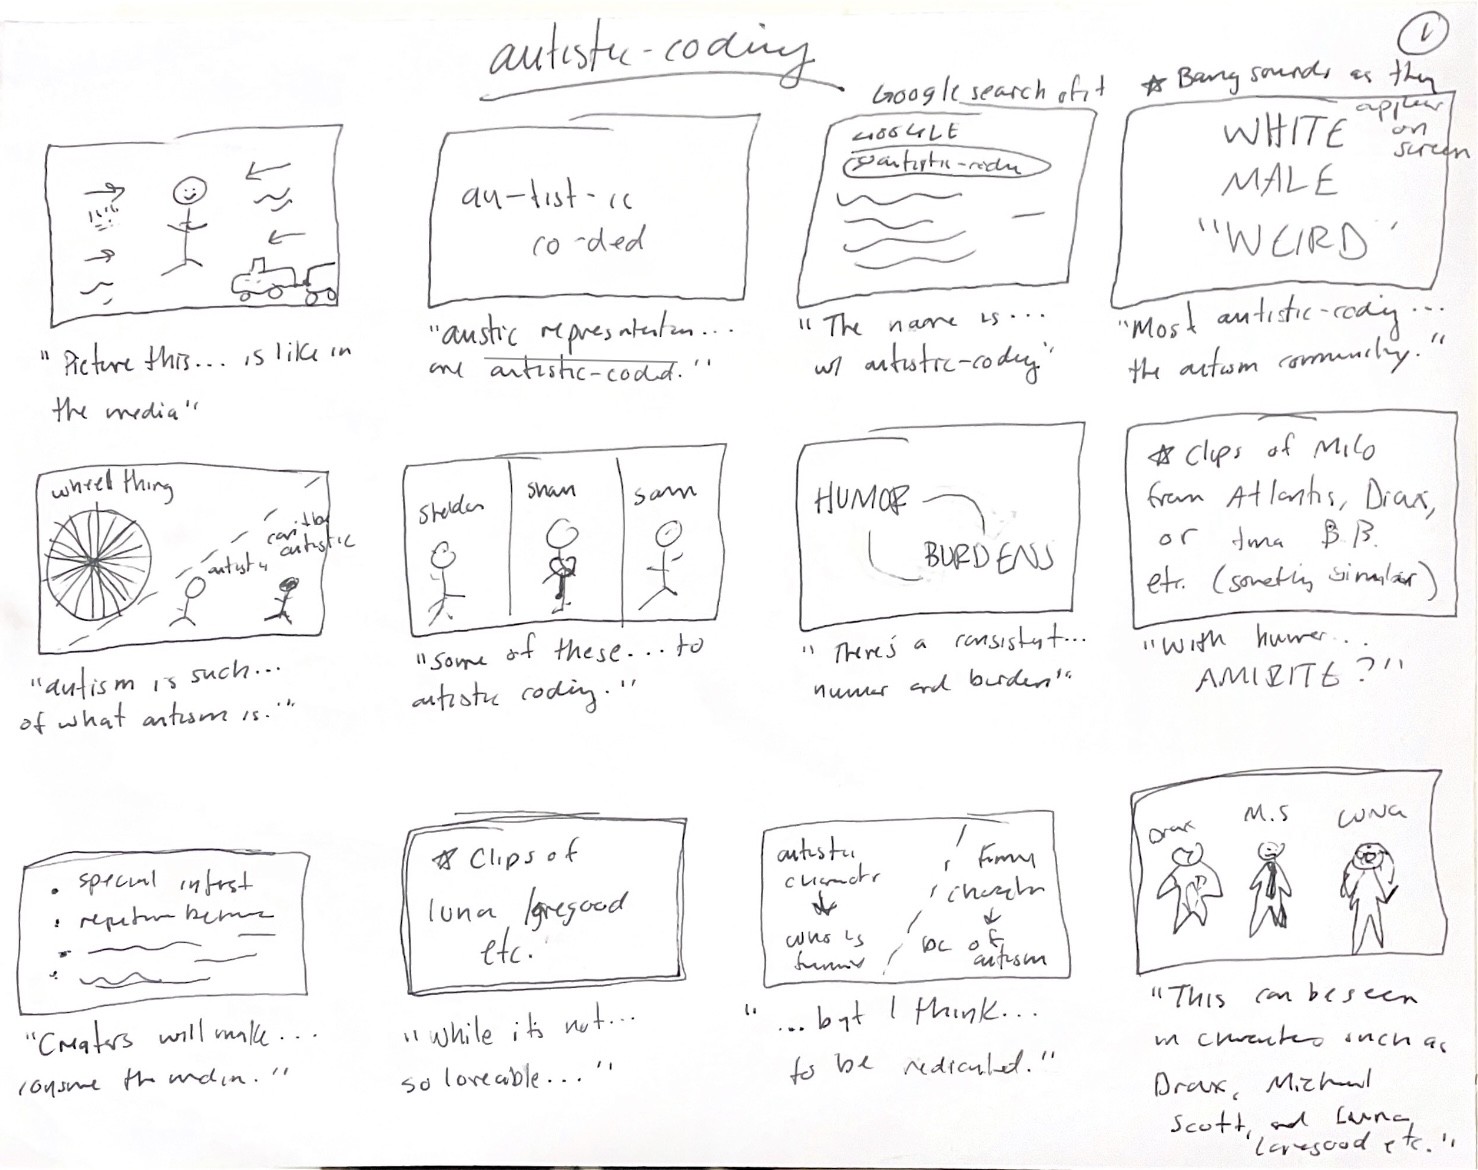 autistic-coding
1
Google search of it
☆ Bang sounds as they
appear
on
screen
au-tist-ic
co-ded
GOOGLE
autistic-codin
WHITE
MALE
"WEIRD"
"Picture this... is like in
the media"
"austic representation...
are autistic-coded."
"The name is...
w/ autistic-coding"
"Most autistic-coding...
the autism community."
wheel thing
autistic
can't be
autistic
Sheldon
Shaun
Sam
HUMOR
BURDENS
☆ Clips of Milo
from Atlantis, Drax,
or tina B.B.
etc. (something similar)
"autism is such...
of what autism is."
"Some of these... to
autistic coding."
"There's a consistent...
humor and burden"
"With humor...
AMIRITE?"
• special intrest
•
☆ Clips of
luna lovegood
etc.
autistic
character
↓
who is
funny
funny
character
↓
bc of
autism
Drax
M.S
LUNA
"Creators will make...
consume the media."
"While it's not...
so loveable..."
"...but I think...
to be rediculed."
"This can be seen
in characters such as
Drax, Michael
Scott, and Luna
lovegood etc."